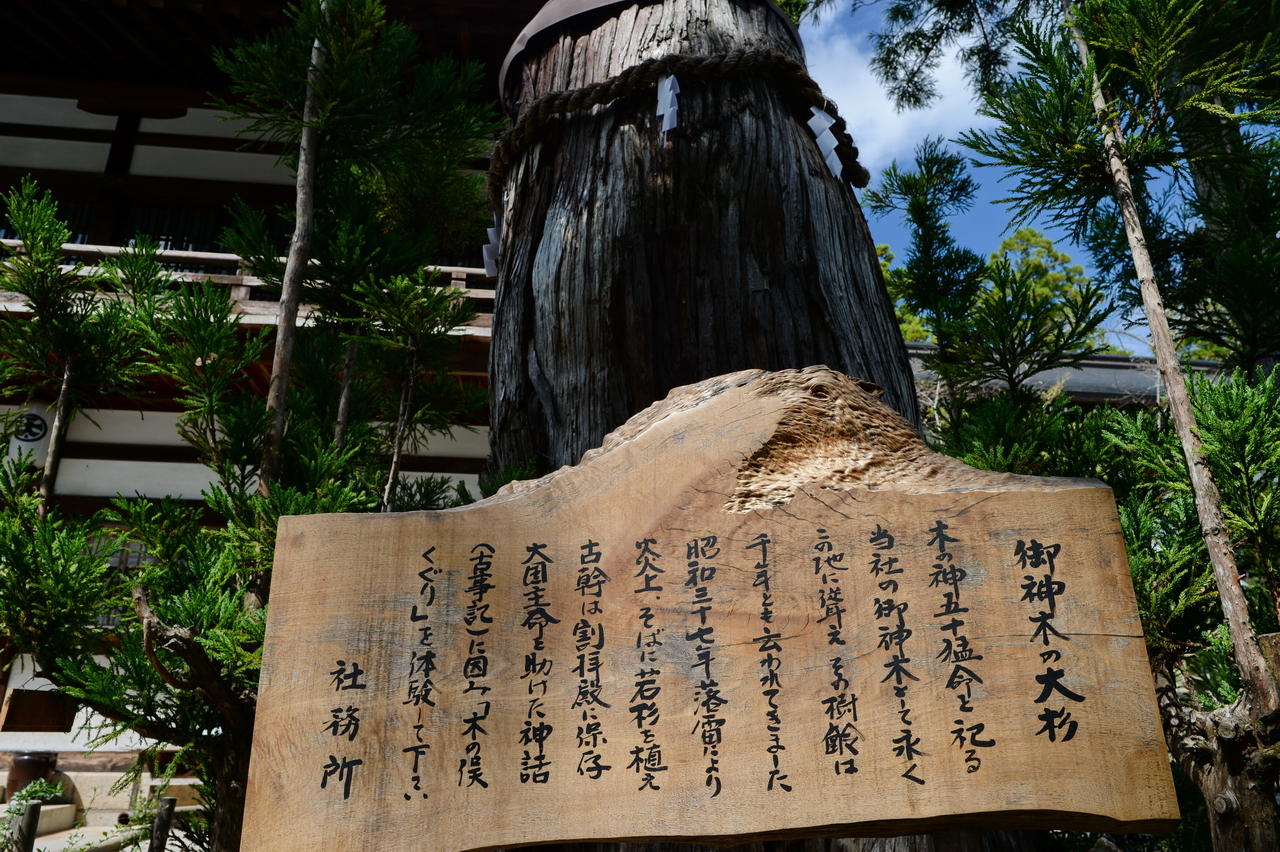 御神木の大杉
木の神五十猛命と祀る
当社の御神木として永く
この地に聳え その樹齢は
千年とも云われてきました
昭和三十七年落雷により
炎上、そばに若杉を植え
古幹は割拝殿に保存
大国主命を助けた神話
(古事記)に因み「木の俣
くぐり」を体験して下さい
社務所